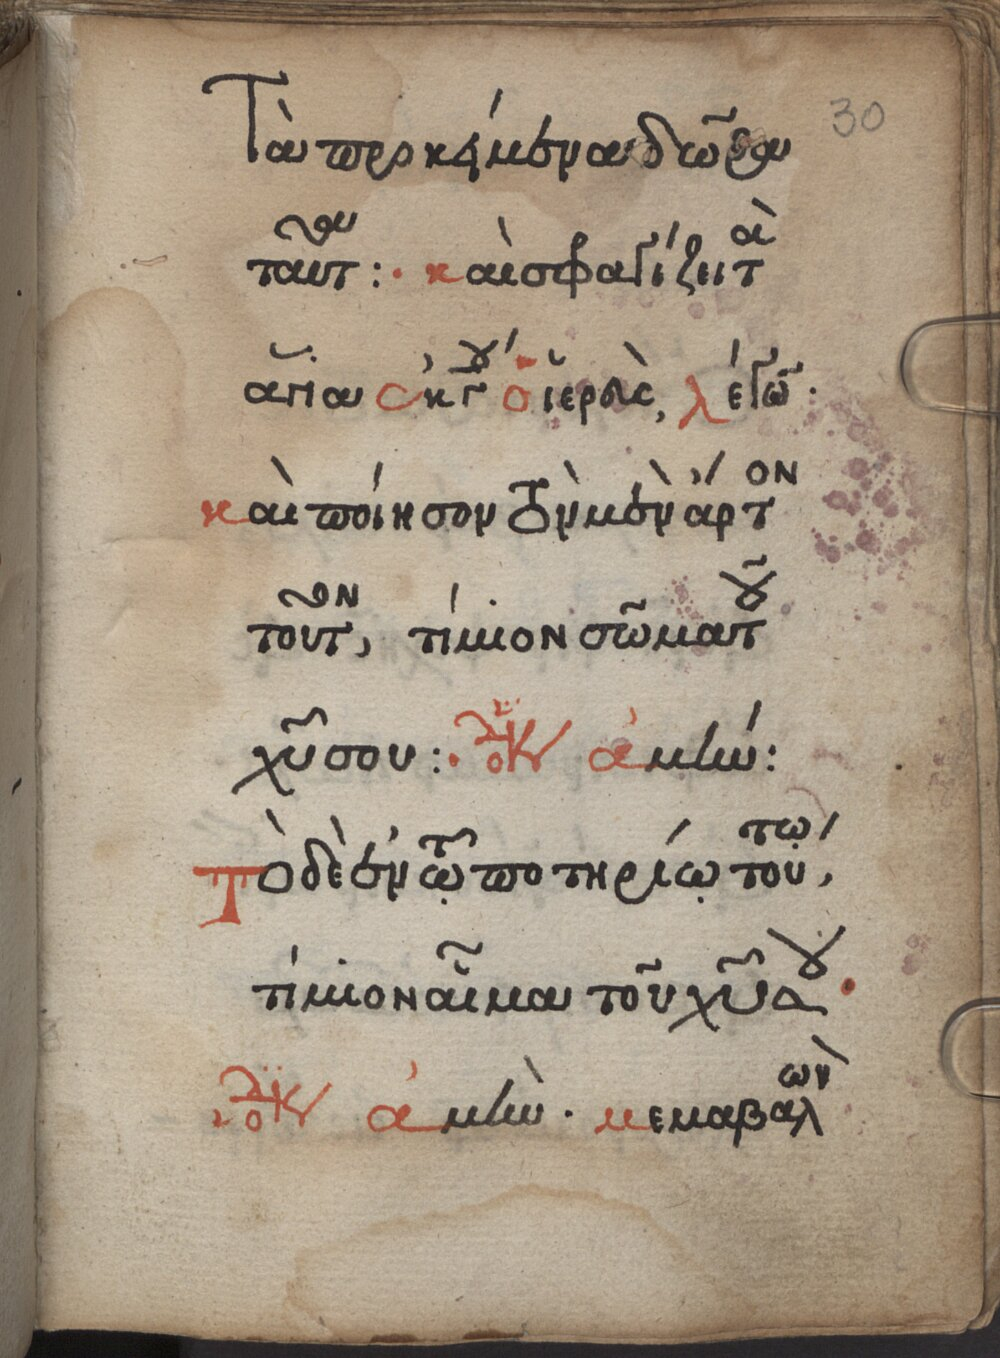 30
Τὰ προκείμενα δῶρα
ταῦτα: · καὶ σφραγίζει τὰ
ἅγια ὁ ἱερεὺς, λέγων:
καὶ ποίησον τὸν μὲν ἄρτον
τοῦτον, τίμιον σῶμα τοῦ
χῦ σου: · ἀμήν:
Τὸ δὲ ἐν τῷ ποτηρίῳ τούτῳ,
τίμιον αἷμα τοῦ χῦ σου·
ἀμὴν · μεταβαλὼν